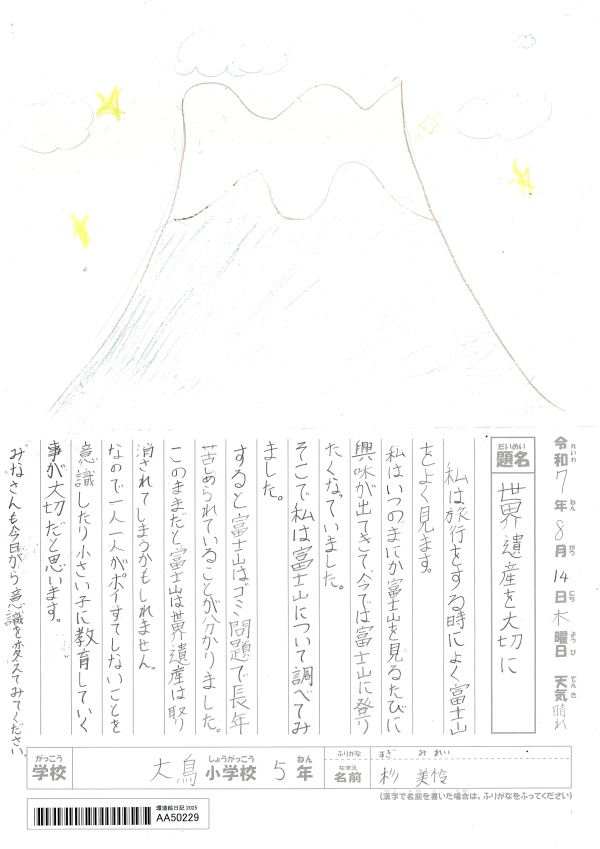 令和7年8月14日木曜日 天気晴れ
れいわ ねん がつ にち ようび てんき
だいめい
題名 世界遺産を大切に
私は旅行をする時によく富士山
をよく見ます。
私はいつのまにか富士山を見るたびに
興味が出てきて、今では富士山に登り
たくなっていました。
そこで私は富士山について調べてみ
ました。
すると富士山はゴミ問題で長年
苦しめられていることが分かりました。
このままだと富士山は世界遺産は取り
消されてしまうかもしれません。
なので一人一人がポイすてしないことを
意識したり小さい子に教育していく
事が大切だと思います。
みなさんも今日から意識を変えてみてください。
がっこう しょうがっこう ねん ふりがな すぎ みれい
学校 大鳥小学校 5年 なまえ 名前 杉 美怜
(漢字で名前を書いた場合は、ふりがなをふってください)
環境絵日記 2025
AA50229